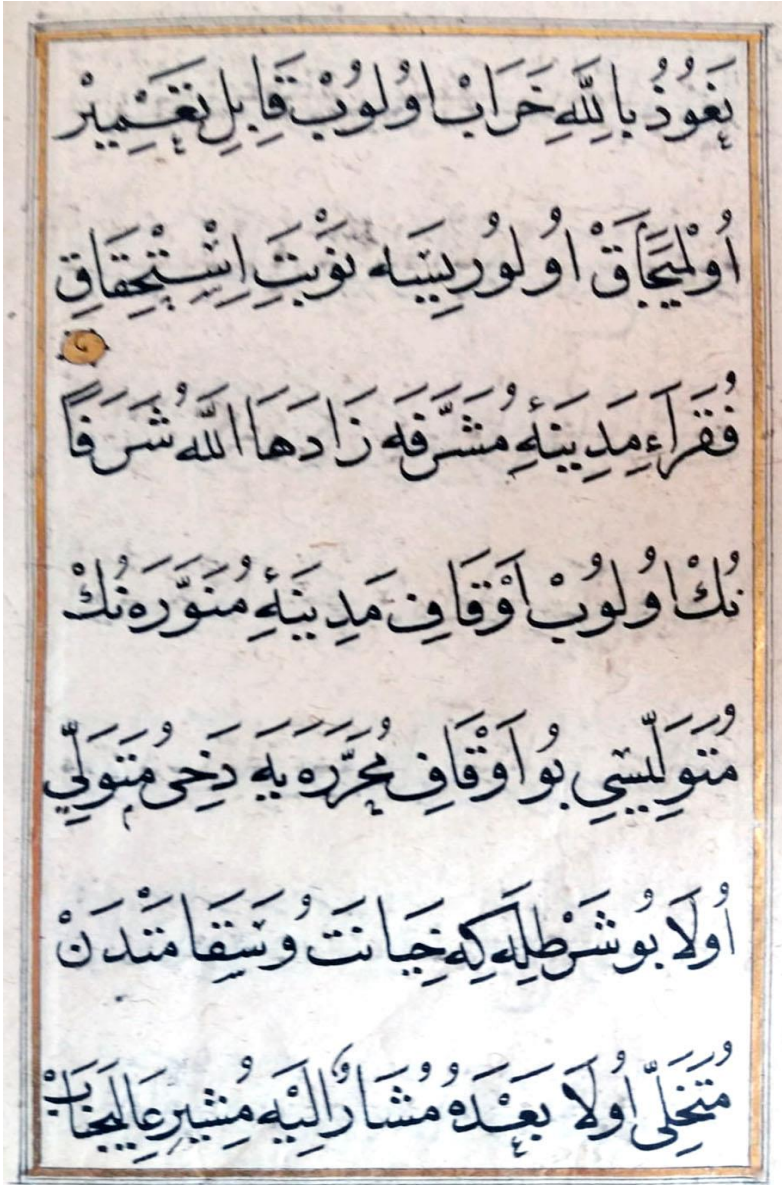 نَعُوذُ بِاللّٰهِ خَرَابْ اُولُوبْ قَابِلِ تَعْمِيرْ
اُولْمِيَجَاقْ اُولُورِيسَيَه نَوْبَتِ اِسْتِحْقَاقِ
فُقَرَآءِ مَدِينَهِٔ مُشَرَّفَه زَادَهَا اللّٰه شَرَفًا
نُكْ اُولُوبْ اَوْقَافِ مَدِينَهِٔ مُنَوَّرَه نُكْ
مُتَوَلِّيسِي بُو اَوْقَافِ مُحَرَّرَه يَه دَخِى مُتَوَلِّي
اُولَا بُو شَرْطِلَه كِه خِيَانَتْ وُسَقَامَتْدَنْ
مُتَخَلِّى اُولَا بَعْدَهُ مُشَارٌ اِلَيْه مُشِيرِ عَالِيجَنَابْ